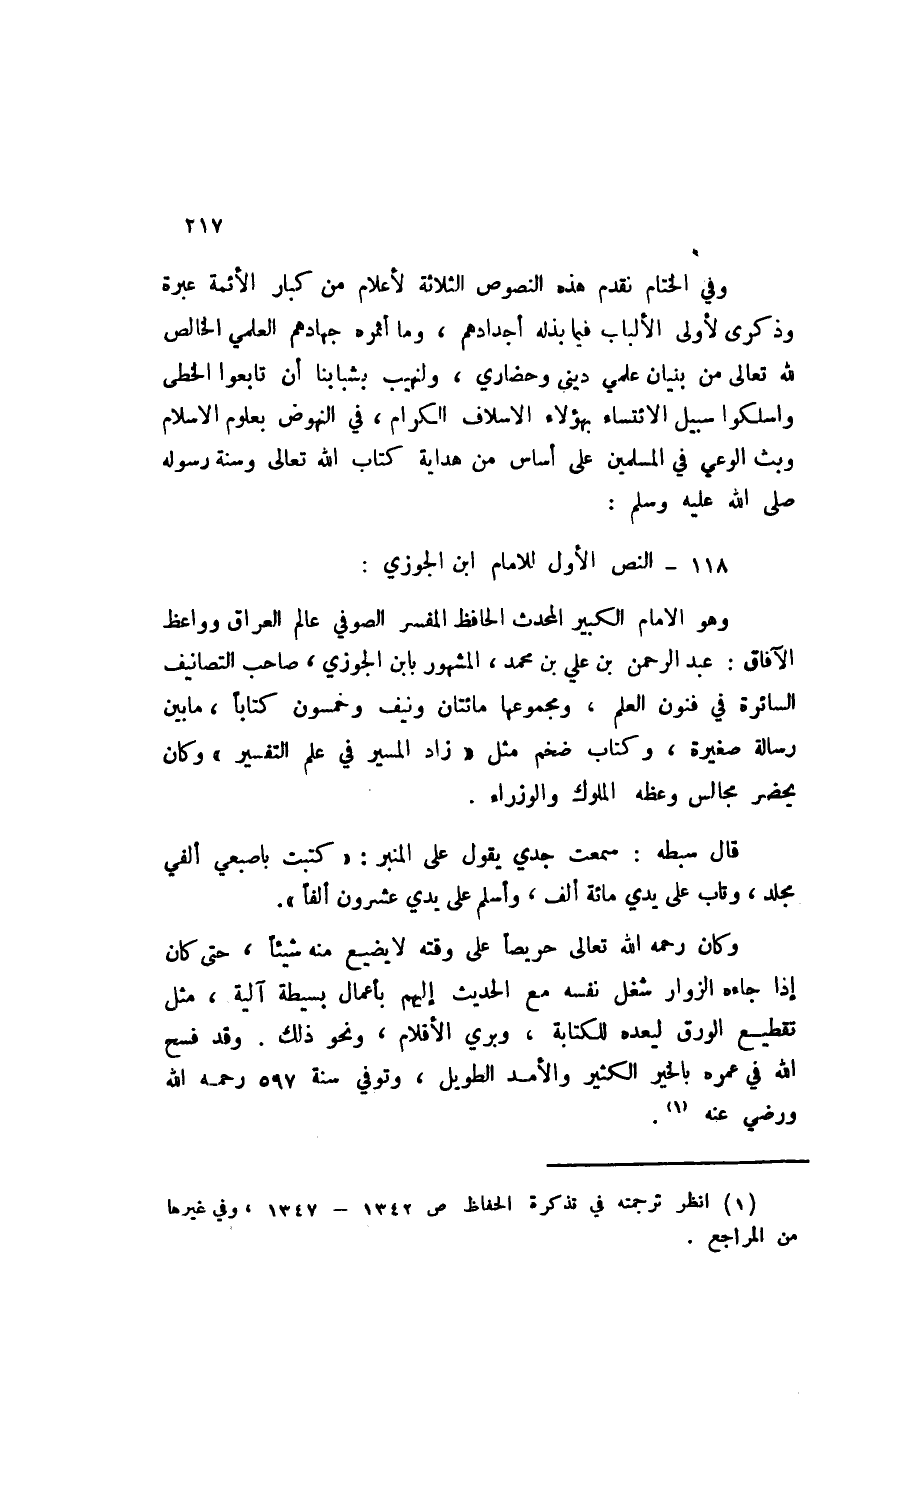 ٢١٧
وفي الختام نقدم هذه النصوص الثلاثة لأعلام من كبار الأئمة عبرة
وذكرى لأولى الألباب فيما بذله أجدادهم ، وما أثمره جهادهم العلمي الخالص
لله تعالى من بنيان علمي ديني وحضاري ، ولنهيب بشبابنا أن تابعوا الخطى
واسلكوا سبيل الائتساء بهؤلاء الاسلاف الكرام ، في النهوض بعلوم الاسلام
وبث الوعي في المسلمين على أساس من هداية كتاب الله تعالى وسنة رسوله
صلى الله عليه وسلم :
١١٨ – النص الأول للامام ابن الجوزي :
وهو الامام الكبير المحدث الحافظ المفسر الصوفي عالم العراق وواعظ
الآفاق : عبد الرحمن بن علي بن محمد ، المشهور بابن الجوزي ، صاحب التصانيف
السائرة في فنون العلم ، ومجموعها مائتان ونيف وخمسون كتاباً ، مابين
رسالة صغيرة ، وكتاب ضخم مثل « زاد المسير في علم التفسير » وكان
يحضر مجالس وعظه الملوك والوزراء .
قال سبطه : سمعت جدي يقول على المنبر : « كتبت باصبعي ألفي
مجلد ، وتاب على يدي مائة ألف ، وأسلم على يدي عشرون ألفاً ».
وكان رحمه الله تعالى حريصاً على وقته لايضيع منه شيئاً ، حتى كان
إذا جاءه الزوار شغل نفسه مع الحديث إليهم بأعمال بسيطة آلية ، مثل
تقطيع الورق ليعده للكتابة ، وبري الأقلام ، ونحو ذلك . وقد فسح
الله في عمره بالخير الكثير والأمد الطويل ، وتوفي سنة ٥٩٧ رحمه الله
ورضي عنه (١) .
(١) انظر ترجمته في تذكرة الحفاظ ص ١٣٤٢ – ١٣٤٧ ، وفي غيرها
من المراجع .